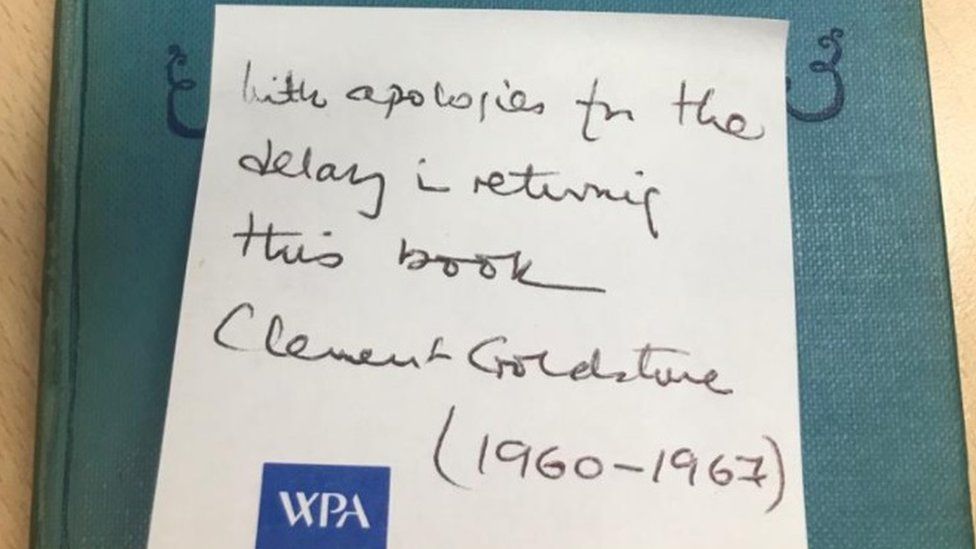 With apologies for the
delay in returning
this book
Clement Goldstone
(1960-1967)
WPA